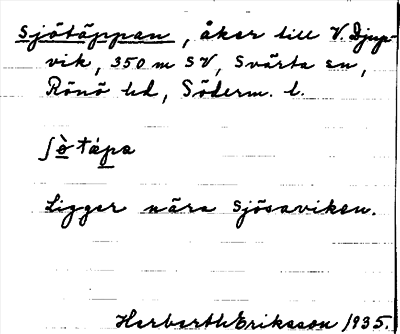 Sjötäppan, åker till V. Djup-
vik, 350 m SV, Svärta sn,
Rönö hd, Söderm. l.
Ligger nära Sjösaviken.
Herbarth Eriksson 1935.